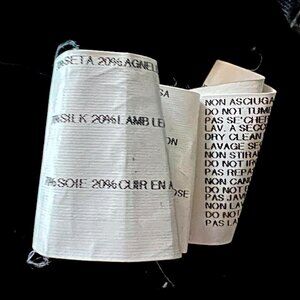 SETA 20% AGNEL
SILK 20% LAMB LE
SOIE 20% CUIR EN A
SA
ON
OSE
NON ASCIUGA
DO NOT TUM
PAS SE'CHE
LAV. A SECC
DRY CLEAN
LAVAGE SE
NON STIRA
DO NOT IR
PAS REPAS
NON CAN
DO NOT
PAS JAV
NON LAV
DO NOT
PAS LA